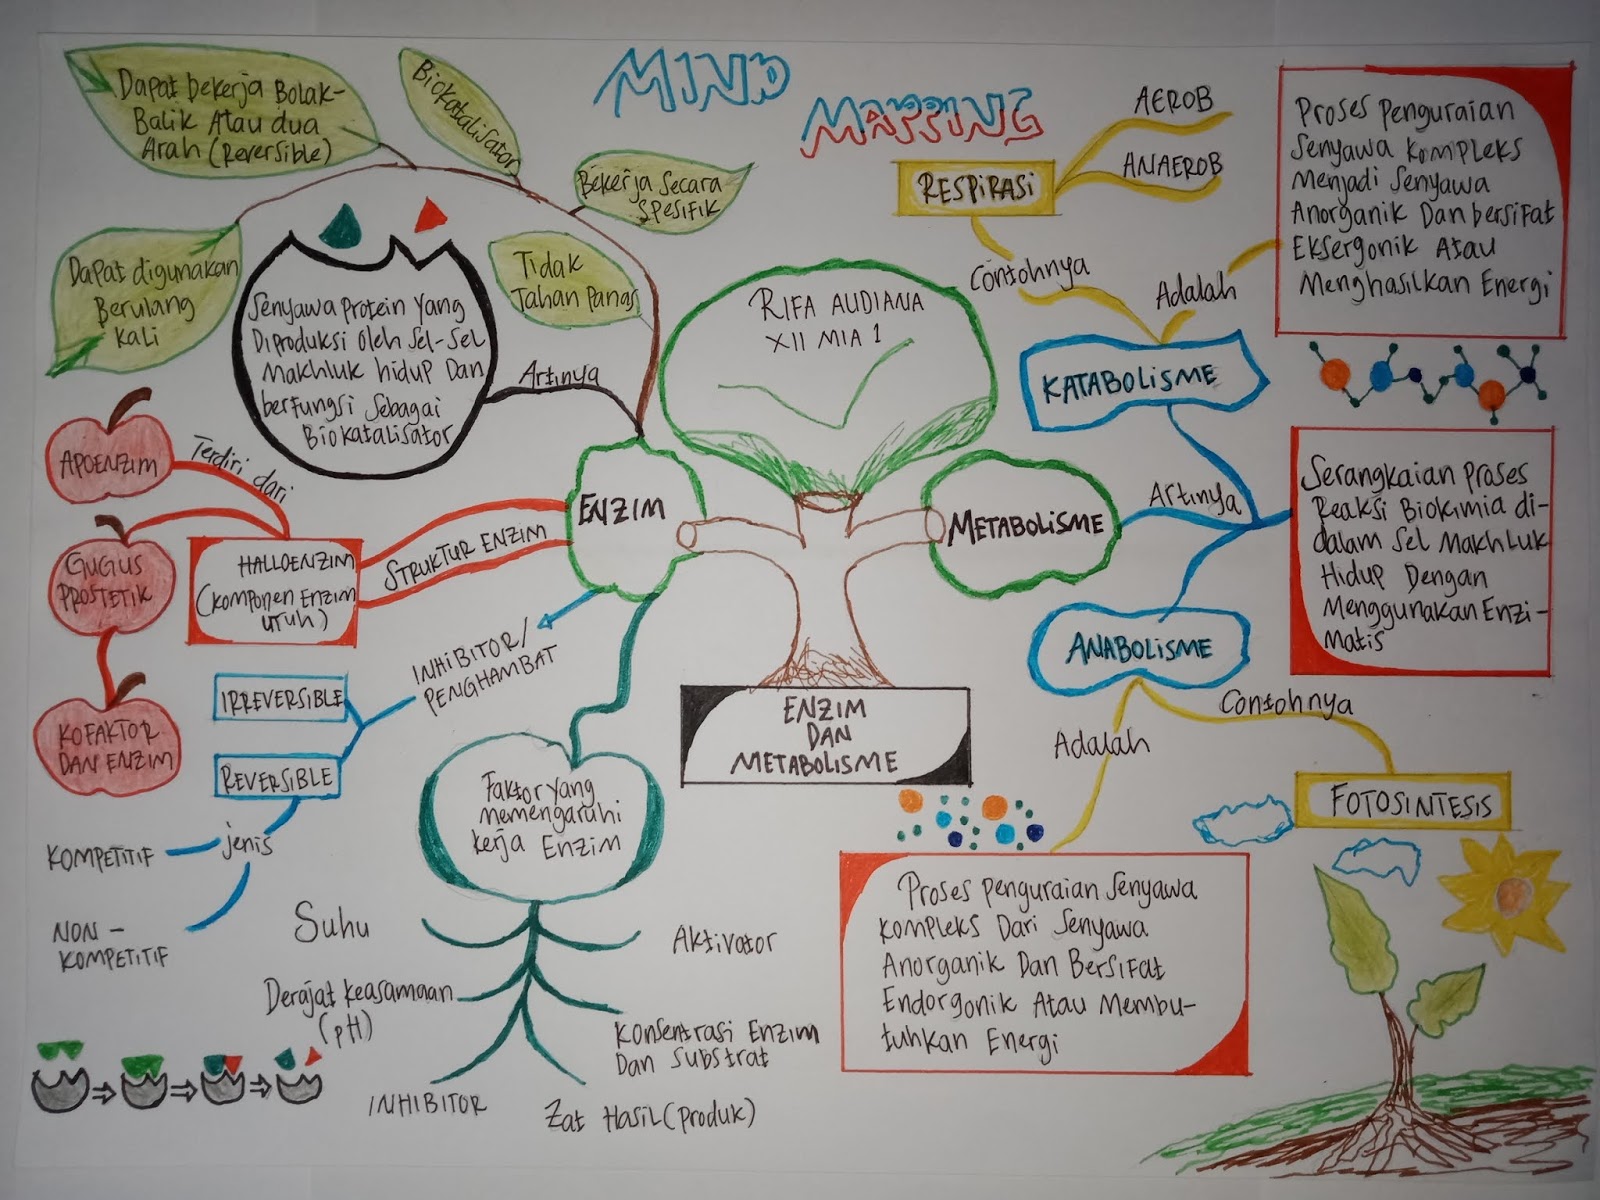 MIND
MAPPING
Dapat bekerja Bolak-
Balik Atau dua
Arah (Reversible)
Biokatalisator
Bekerja Secara
Spesifik
Tidak
Tahan Panas
Dapat digunakan
Berulang
kali
Senyawa Protein yang
Diproduksi oleh Sel-Sel
Makhluk hidup Dan
berfungsi Sebagai
Biokatalisator
Artinya
ENZIM
APOENZIM
Terdiri dari
GUGUS
PROSTETIK
KOFAKTOR
DAN ENZIM
HALLOENZIM
(Komponen Enzim
UTUH)
STRUKTUR ENZIM
INHIBITOR/
PENGHAMBAT
IRREVERSIBLE
REVERSIBLE
jenis
KOMPETITIF
NON -
KOMPETITIF
Faktor yang
memengaruhi
kerja Enzim
Suhu
Derajat keasamaan
(pH)
INHIBITOR
Zat Hasil (Produk)
Konsentrasi Enzim
Dan Substrat
Aktivator
RIFA AUDIANA
XII MIA 1
ENZIM
DAN
METABOLISME
METABOLISME
Artinya
Serangkaian Proses
Reaksi Biokimia di-
dalam Sel Makhluk
Hidup Dengan
Menggunakan Enzi-
Matis
KATABOLISME
Contohnya
RESPIRASI
AEROB
ANAEROB
Adalah
Proses Penguraian
Senyawa Kompleks
Menjadi Senyawa
Anorganik Dan bersifat
Eksergonik Atau
Menghasilkan Energi
ANABOLISME
Adalah
Proses Penguraian Senyawa
Kompleks Dari Senyawa
Anorganik Dan Bersifat
Endorgonik Atau Membu-
tuhkan Energi
Contohnya
FOTOSINTESIS